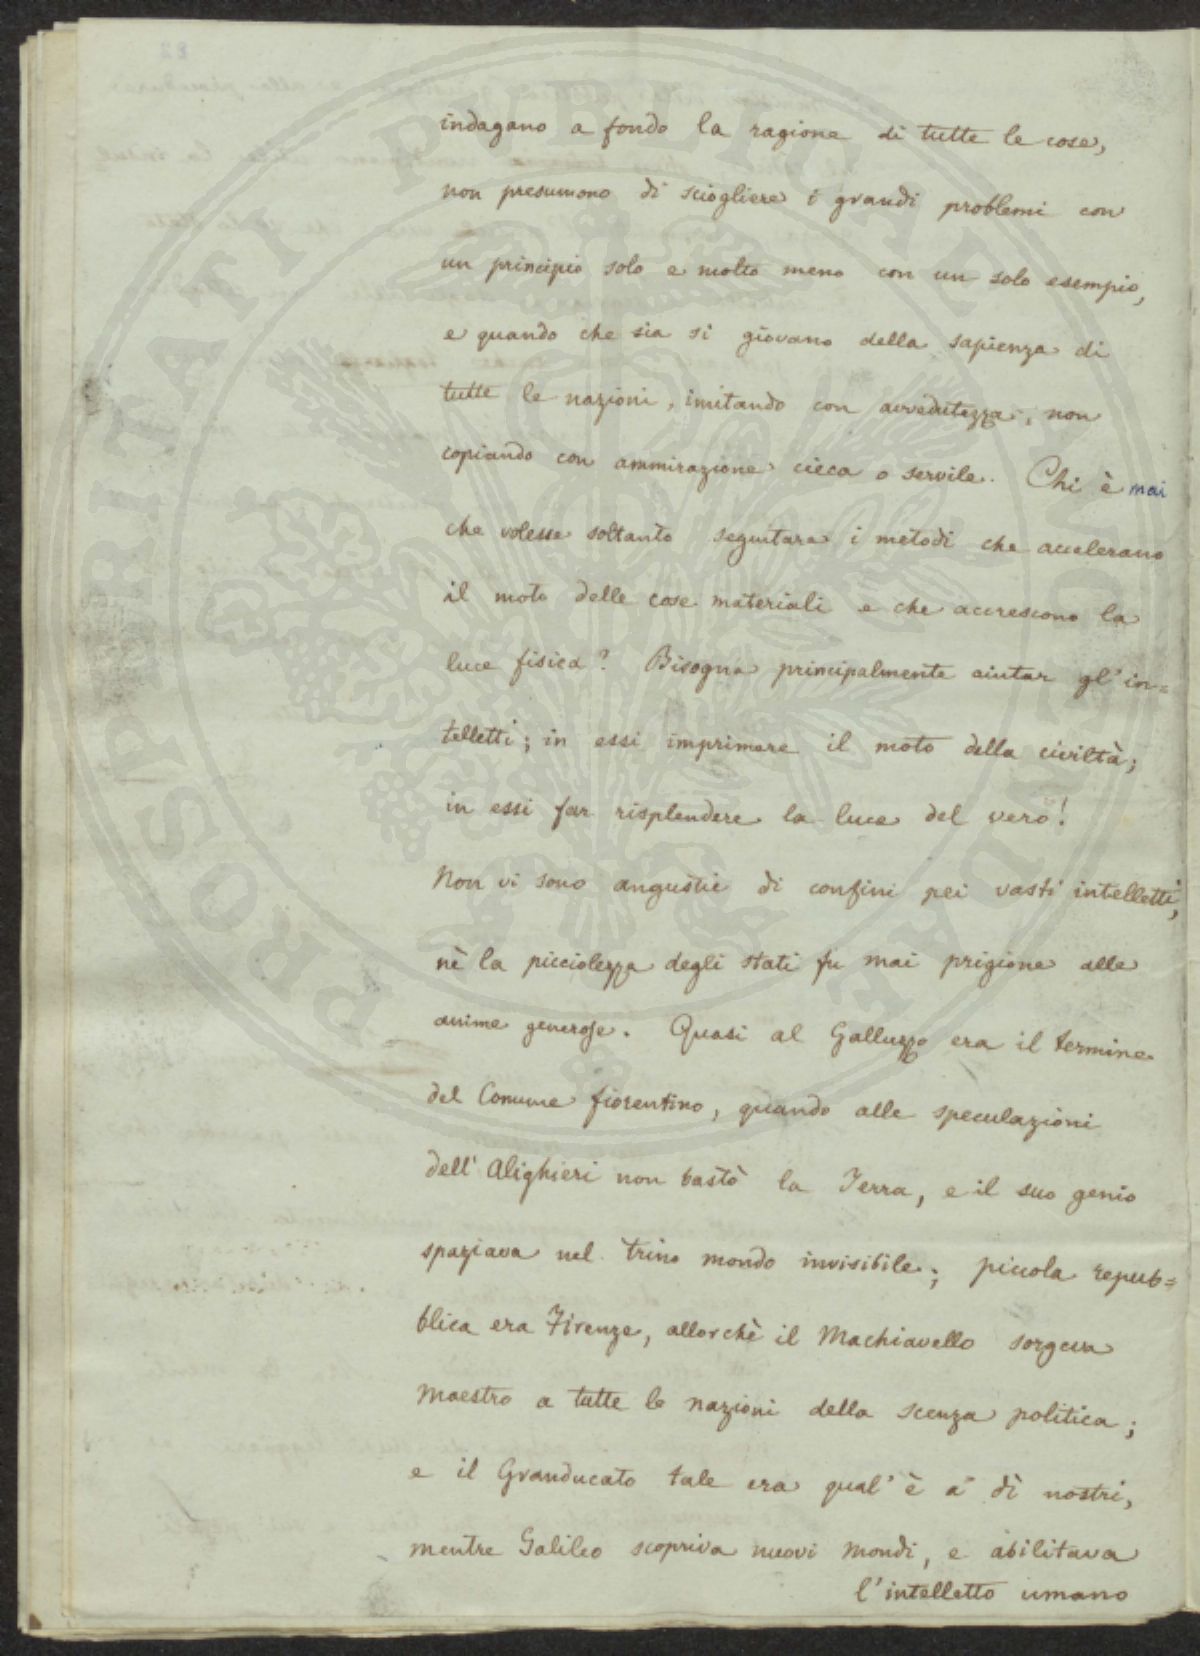 indagano a fondo la ragione di tutte le cose,
non presumono di sciogliere i grandi problemi con
un principio solo e molto meno con un solo esempio,
e quando che sia si giovano della sapienza di
tutte le nazioni, imitando con avvedutezza, non
copiando con ammirazione cieca o servile. Chi è mai
che volesse soltanto seguitare i metodi che accelerano
il moto delle cose materiali e che accrescono la
luce fisica? Bisogna principalmente aiutar gl'in=
telletti; in essi imprimere il moto della civiltà;
in essi far risplendere la luce del vero!
Non vi sono angustie di confini pei vasti intelletti,
nè la picciolezza degli stati fu mai prigione alle
anime generose. Quasi al Galluzzo era il termine
del Comune fiorentino, quando alle speculazioni
dell'Alighieri non bastò la Terra, e il suo genio
spaziava nel trino mondo invisibile; piccola repub=
blica era Firenze, allorchè il Machiavello sorgeva
maestro a tutte le nazioni della scenza politica;
e il Granducato tale era qual'è a' dì nostri,
mentre Galileo scopriva nuovi mondi, e abilitava
l'intelletto umano
PROSPERITATI PUBLICAE